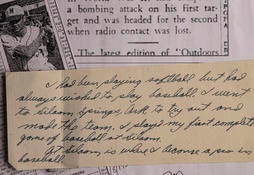 in World W
a bombing attack on his first
target and was headed for the second
when radio contact was lost.
The latest edition of "Outdoors
I had been playing softball but had
always wished to play baseball. I went
to Siloam Springs, Ark to try out and
made the team. I played my first complete
game of baseball at Siloam.
Siloam is where I became a pro in
baseball.